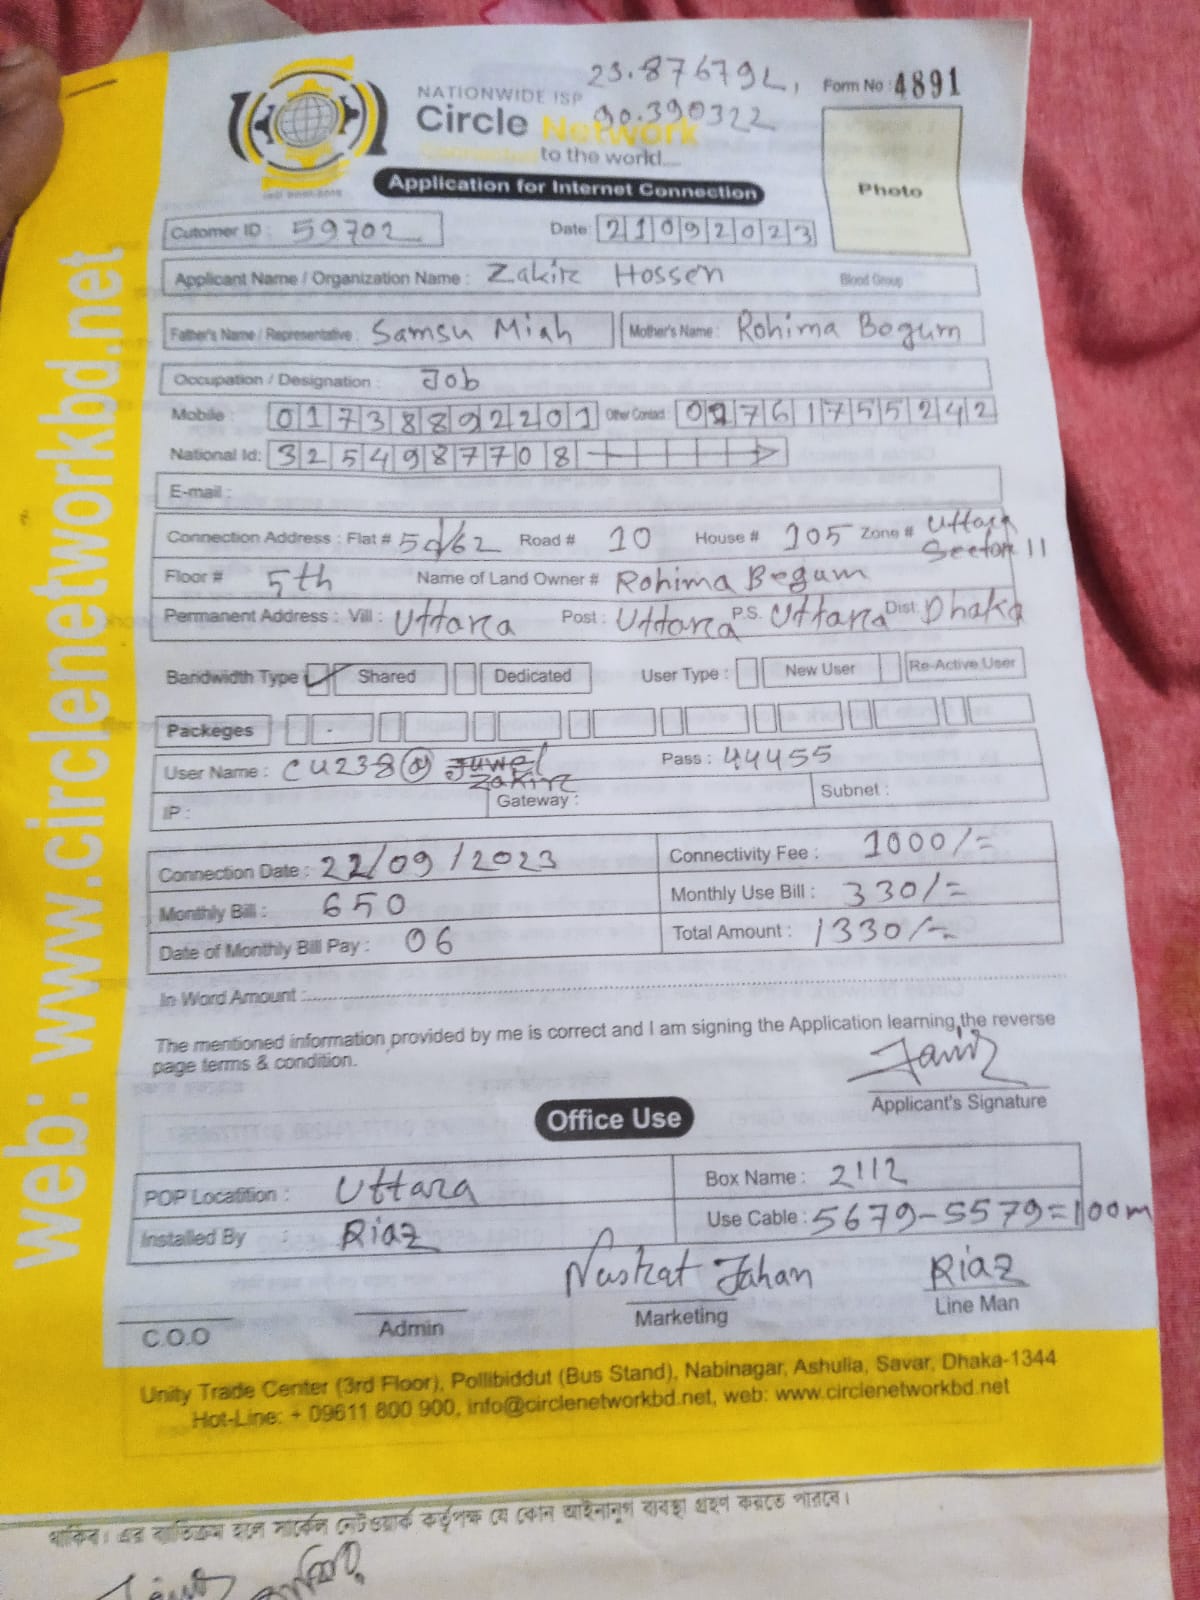 23.876792,
90.390322
Form No : 4891
NATIONWIDE ISP
Circle Network
to the world....
Photo
Application for Internet Connection
Cutomer ID : 59702 Date: 21092023
Applicant Name / Organization Name : Zakir Hossen Blood Group
Father's Name / Representative : Samsu Miah Mother's Name : Rohima Begum
Occupation / Designation : Job
Mobile : 01738892201 Other Contact : 01761755242
National Id: 3254987708
E-mail :
Connection Address : Flat # 5d/62 Road # 10 House # 105 Zone # Uttara Sector 11
Floor # 5th Name of Land Owner # Rohima Begum
Permanent Address : Vill : Uttara Post : Uttara P.S. Uttara Dist. Dhaka
Bandwidth Type Shared Dedicated User Type : New User Re-Active User
Packeges
User Name : CU238@ Juwel Pass : 44455
Zakir
IP : Gateway : Subnet :
Connection Date : 22/09/2023 Connectivity Fee : 1000/=
Monthly Bill : 650 Monthly Use Bill : 330/=
Date of Monthly Bill Pay : 06 Total Amount : 1330/=
In Word Amount :
The mentioned information provided by me is correct and I am signing the Application learning the reverse
page terms & condition.
Applicant's Signature
Office Use
POP Locatition : Uttara Box Name : 2112
Installed By : Riaz Use Cable : 5679-5579=100m
Nusrat Jahan Riaz
C.O.O Admin Marketing Line Man
Unity Trade Center (3rd Floor), Pollibiddut (Bus Stand), Nabinagar, Ashulia, Savar, Dhaka-1344
Hot-Line: + 09611 800 900, info@circlenetworkbd.net, web: www.circlenetworkbd.net
web: www.circlenetworkbd.net
থাকিব। এর ব্যতিক্রম হলে সার্কেল নেটওয়ার্ক কর্তৃপক্ষ যে কোন আইনানুগ ব্যবস্থা গ্রহণ করতে পারবে।